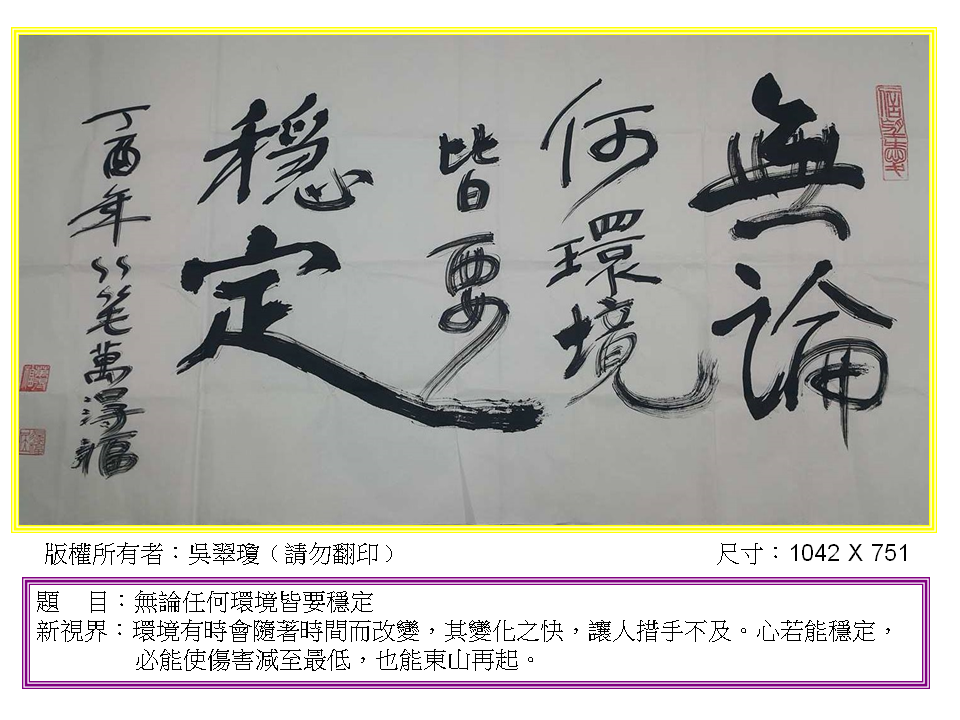 無論
何環境
皆要
穩定
丁酉年 笔萬得福
版權所有者：吳翠瓊（請勿翻印）
尺寸：1042 X 751
題　目：無論任何環境皆要穩定
新視界：環境有時會隨著時間而改變，其變化之快，讓人措手不及。心若能穩定，
必能使傷害減至最低，也能東山再起。